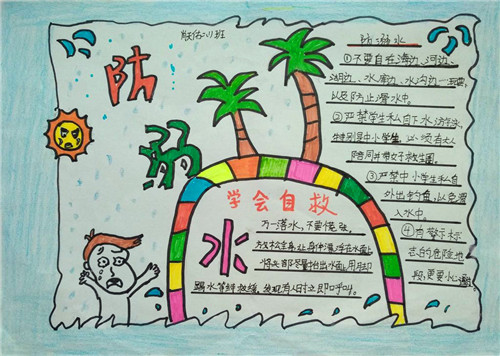 班
防
溺
水
防溺水
①不要自在海边、河边、
湖边、水库边、水沟边玩耍,
以及防止滑水中。
②严禁学生私自下水游泳,
特别是中小学生,必须有大人
陪同并带好救生圈。
③严禁中小学生私自
外出钓鱼,以免
入水中。
④有警示标
志的危险地
段,更要小心
学会自救
万一落水,不要慌张,
放松全身让身体漂浮在水面上,
将头部尽量抬出水面,用脚
踢水等待救援,发现有人时立即呼叫。